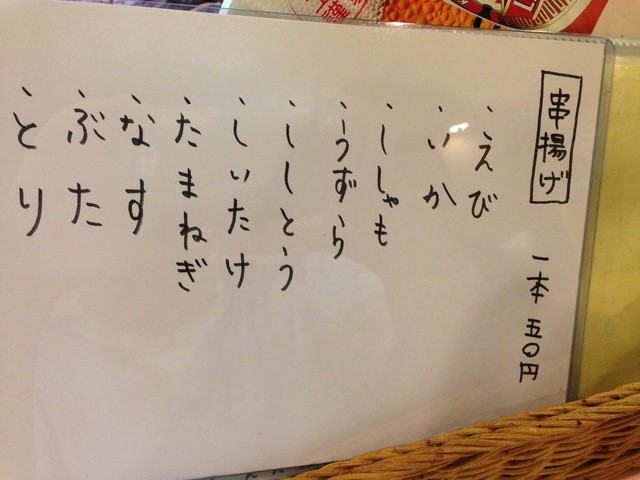 串揚げ 一本 五〇円
、えび
、いか
、ししゃも
、うずら
、ししとう
、しいたけ
、たまねぎ
、なす
、ぶた
、とり